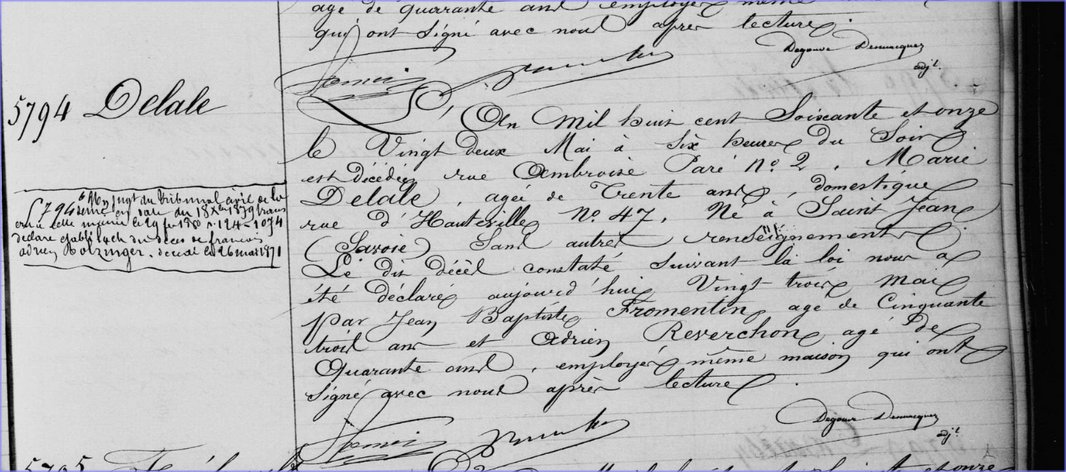 agé de quarante ans employés même
qui ont signé avec nous après lecture.
Degouve Denuncques
adjt.
5794 Delale
L'An Mil huit cent Soixante et onze
le Vingt deux Mai à Six heures du Soir
est décédée, rue Ambroise Paré No. 2, Marie
Delale, agée de Trente ans, domestique
rue d'Hauteville No. 47, Né à Saint Jean
(Savoie) Sans autres renseignements
Le dit décès constaté suivant la loi nous a
été déclaré aujourd'hui Vingt trois Mai
par Jean Baptiste Fromentin agé de Cinquante
trois ans et Adrien Reverchon agé de
Quarante ans, employés même maison qui ont
signé avec nous après lecture.
5794 bis Un jugt du Tribunal civil de la
Seine en date du 1879 trans
à cette mairie le 124-1074
déclare du décès de francois
adrien Botzinger, décédé le 26 mai 1871
Degouve Denuncques
adjt.
5795